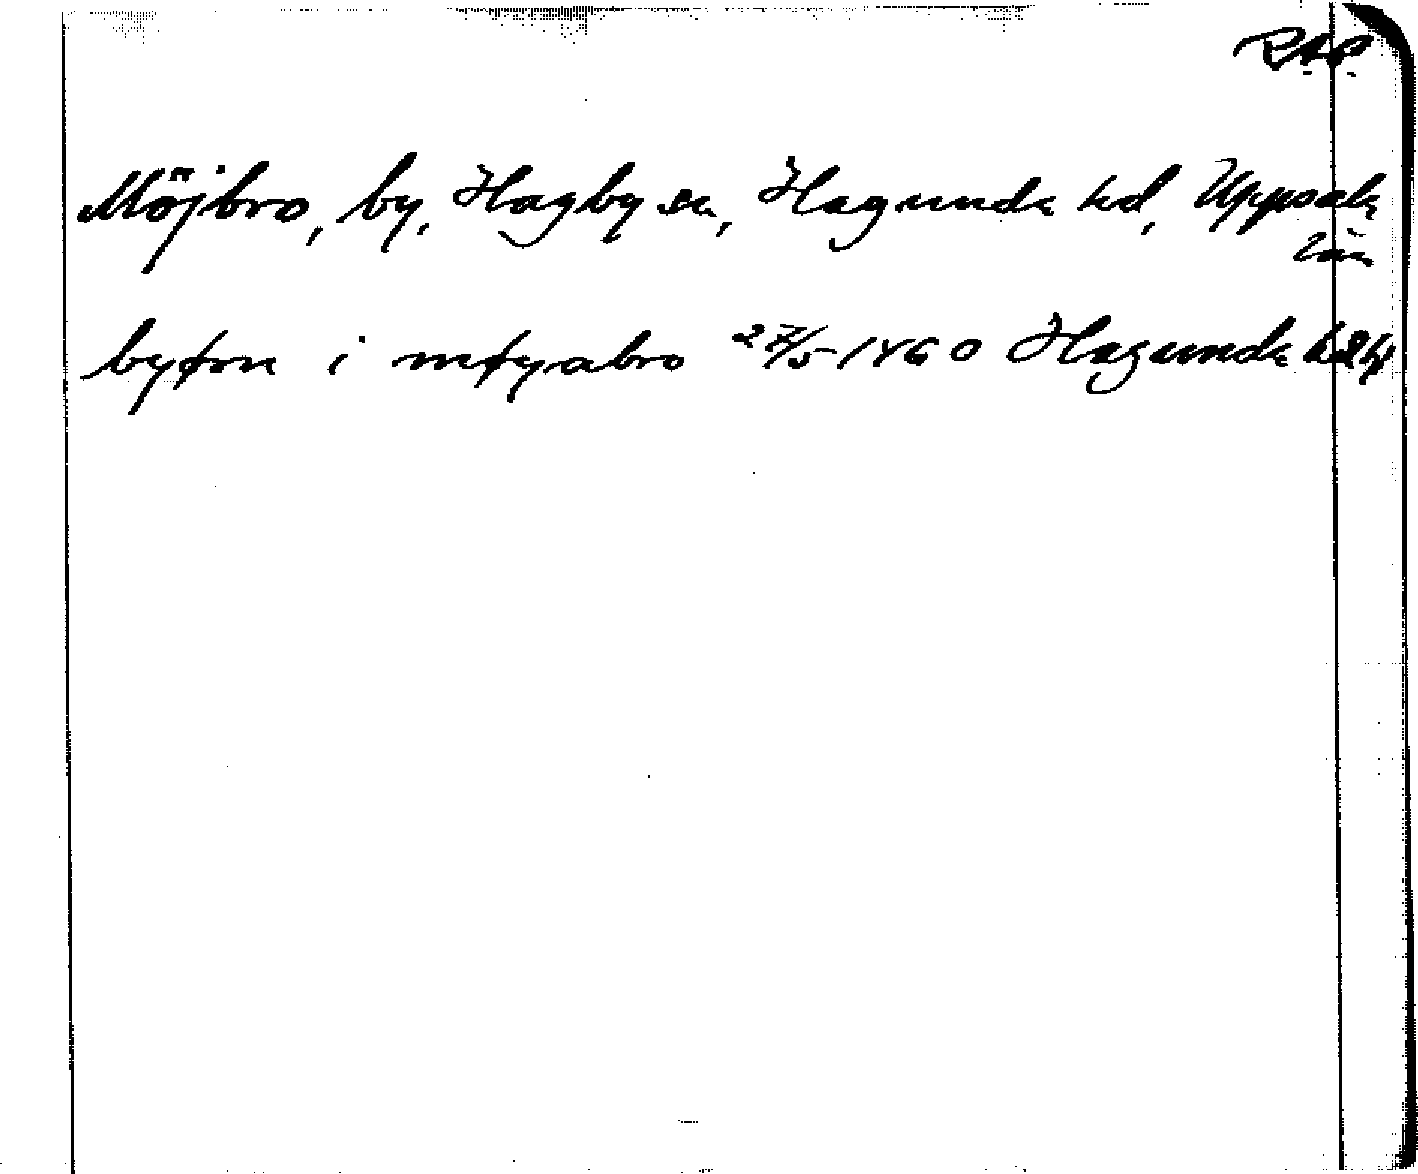 RAp.
Möjbro, by, Hagby sn, Hagunda hd, Uppsala
län
byførn i møyabro 27/5 1460 Hagunda hd